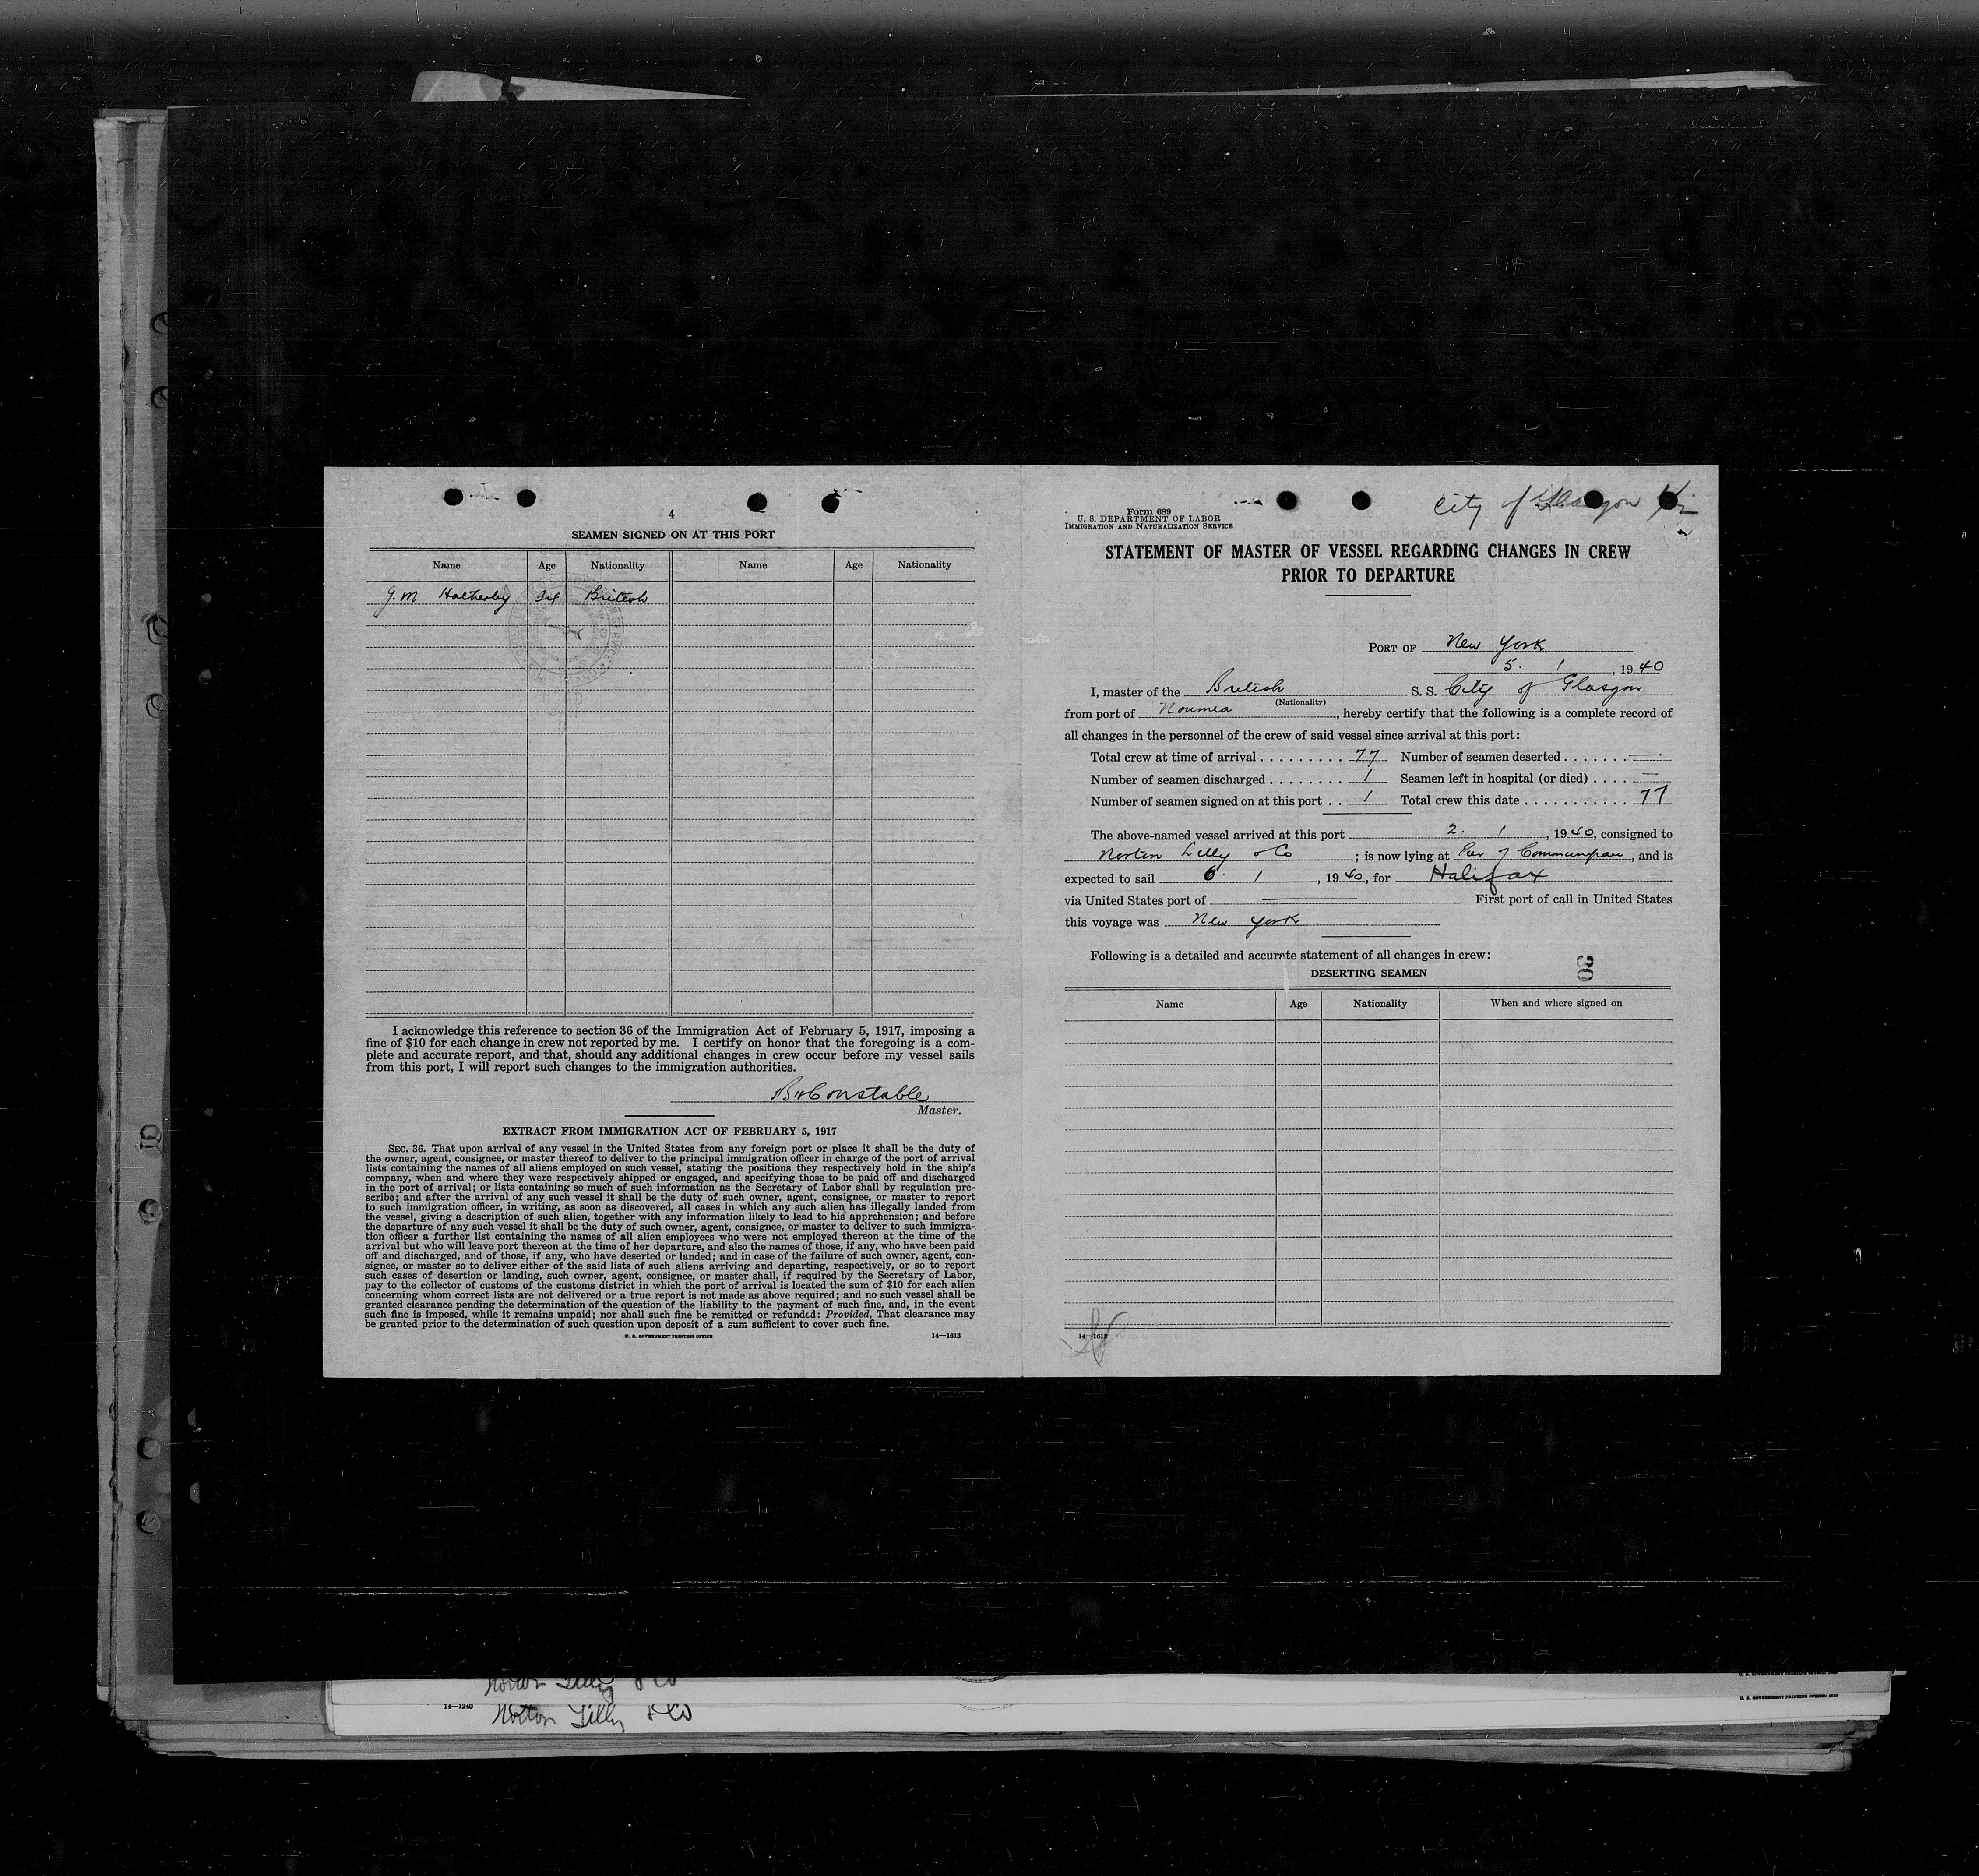 4
SEAMEN SIGNED ON AT THIS PORT
Name Age Nationality Name Age Nationality
G. M Hatherley 34 British
I acknowledge this reference to section 36 of the Immigration Act of February 5, 1917, imposing a
fine of $10 for each change in crew not reported by me. I certify on honor that the foregoing is a com-
plete and accurate report, and that, should any additional changes in crew occur before my vessel sails
from this port, I will report such changes to the immigration authorities.
Constable
Master.
EXTRACT FROM IMMIGRATION ACT OF FEBRUARY 5, 1917
SEC. 36. That upon arrival of any vessel in the United States from any foreign port or place it shall be the duty of
the owner, agent, consignee, or master thereof to deliver to the principal immigration officer in charge of the port of arrival
lists containing the names of all aliens employed on such vessel, stating the positions they respectively hold in the ship's
company, when and where they were respectively shipped or engaged, and specifying those to be paid off and discharged
in the port of arrival; or lists containing so much of such information as the Secretary of Labor shall by regulation pre-
scribe; and after the arrival of any such vessel it shall be the duty of such owner, agent, consignee, or master to report
to such immigration officer, in writing, as soon as discovered, all cases in which any such alien has illegally landed from
the vessel, giving a description of such alien, together with any information likely to lead to his apprehension; and before
the departure of any such vessel it shall be the duty of such owner, agent, consignee, or master to deliver to such immigra-
tion officer a further list containing the names of all alien employees who were not employed thereon at the time of the
arrival but who will leave port thereon at the time of her departure, and also the names of those, if any, who have been paid
off and discharged, and of those, if any, who have deserted or landed; and in case of the failure of such owner, agent, con-
signee, or master so to deliver either of the said lists of such aliens arriving and departing, respectively, or so to report
such cases of desertion or landing, such owner, agent, consignee, or master shall, if required by the Secretary of Labor,
pay to the collector of customs of the customs district in which the port of arrival is located the sum of $10 for each alien
concerning whom correct lists are not delivered or a true report is not made as above required; and no such vessel shall be
granted clearance pending the determination of the question of the liability to the payment of such fine, and, in the event
such fine is imposed, while it remains unpaid; nor shall such fine be remitted or refunded: Provided, That clearance may
be granted prior to the determination of such question upon deposit of a sum sufficient to cover such fine.
U. S. GOVERNMENT PRINTING OFFICE 14—1613
City of Glasgow
Form 689
U. S. DEPARTMENT OF LABOR
IMMIGRATION AND NATURALIZATION SERVICE
STATEMENT OF MASTER OF VESSEL REGARDING CHANGES IN CREW
PRIOR TO DEPARTURE
PORT OF New York
5. 1, 1940
I, master of the British S. S. City of Glasgow
(Nationality)
from port of Noumea, hereby certify that the following is a complete record of
all changes in the personnel of the crew of said vessel since arrival at this port:
Total crew at time of arrival . . . . . . . . . 77 Number of seamen deserted . . . . . . . —
Number of seamen discharged . . . . . . . . 1 Seamen left in hospital (or died) . . . . —
Number of seamen signed on at this port . . 1 Total crew this date . . . . . . . . . . . 77
The above-named vessel arrived at this port 2. 1, 1940, consigned to
Norton Lilly & Co; is now lying at Pier 7 Communipaw, and is
expected to sail 6. 1, 1940, for Halifax
via United States port of — First port of call in United States
this voyage was New York
Following is a detailed and accurate statement of all changes in crew:
30
DESERTING SEAMEN
Name Age Nationality When and where signed on
14—1613
Norton Lilly & Co
14—1240
Norton Lilly & Co
U. S. GOVERNMENT PRINTING OFFICE